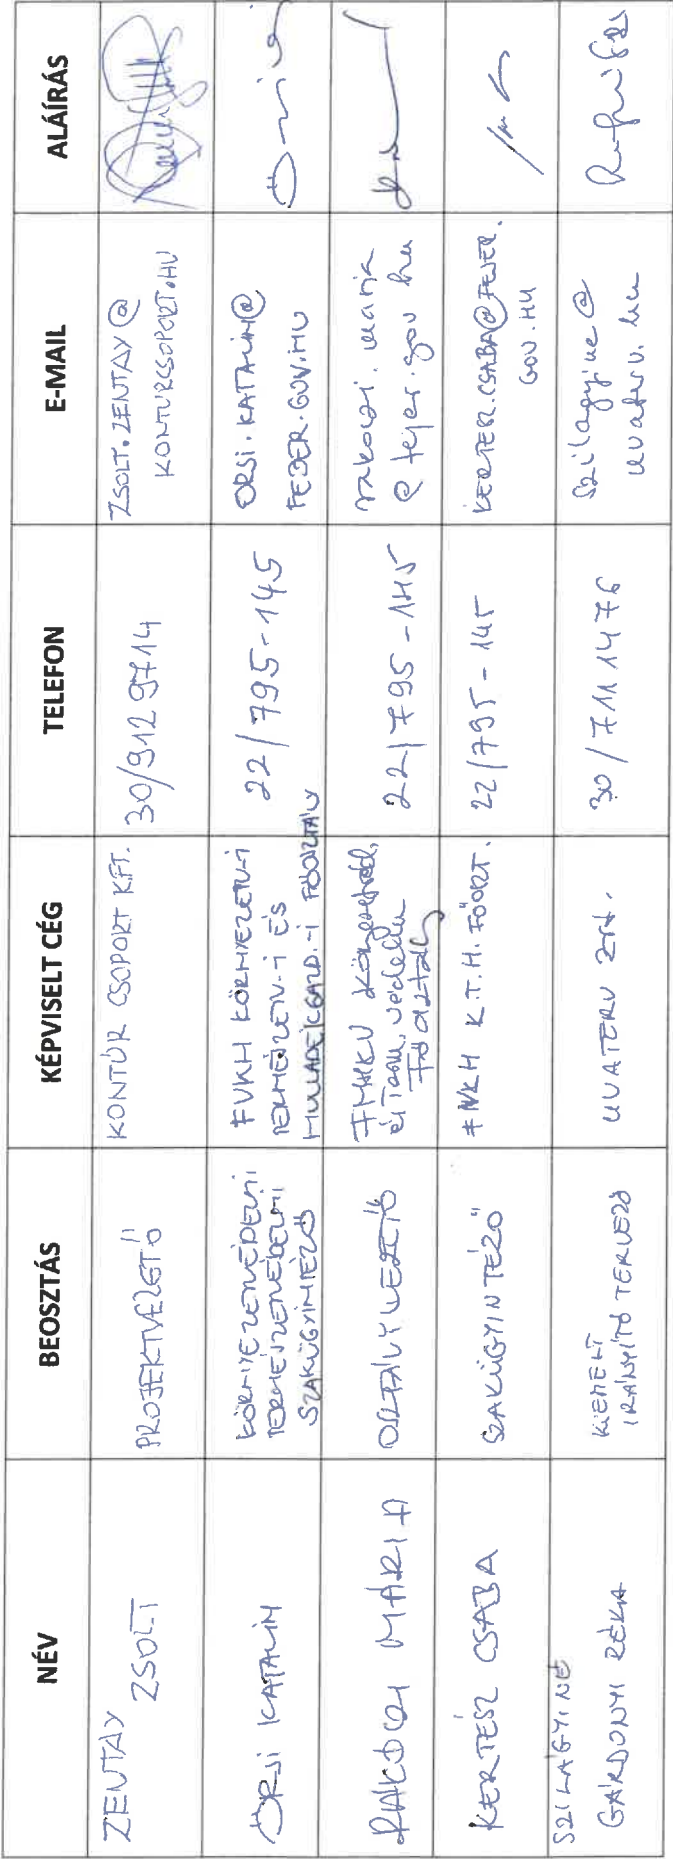 NÉV BEOSZTÁS KÉPVISELT CÉG TELEFON E-MAIL ALÁÍRÁS
ZENTAY
ZSOLT
PROJEKTVEZETŐ
KONTÚR CSOPORT KFT.
30/912 9714
ZSOLT.ZENTAY@
KONTURCSOPORT.HU
ÖRSI KATALIN
KÖRNYEZETVÉDELMI
TERMÉSZETVÉDELMI
SZAKÜGYINTÉZŐ
FVKH KÖRNYEZETV-I
TERMÉSZETV-I ÉS
HULLADÉKGAZD.-I FŐOSZTÁLY
22/795-145
ORSI.KATALIN@
FEJER.GOV.HU
RÁKÓCZI MÁRIA
OSZTÁLYVEZETŐ
Főosztály
22/795-145
rakoczi.maria
@fejer.gov.hu
KERTÉSZ CSABA
SZAKÜGYINTÉZŐ
K.T.H. FŐOSZT.
22/795-145
KERTESZ.CSABA@FEJER.
GOV.HU
SZILÁGYINÉ
GÁRDONYI RÉKA
KIEMELT
IRÁNYÍTÓ TERVEZŐ
UVATERV Zrt.
30/711 1476
szilagyine@
uvaterv.hu